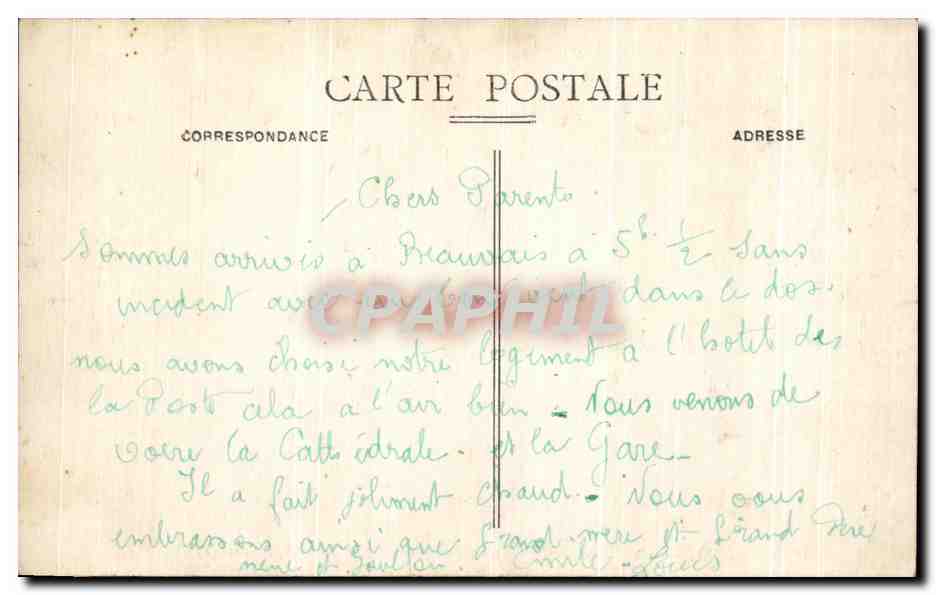 CARTE POSTALE
CORRESPONDANCE
ADRESSE
Chers Parents.
Sommes arrivés à Beauvais à 5h 1/2 sans
incident avec un bon vent dans le dos.
nous avons choisi notre logement à l'hotel de
la Poste cela a l'air bien - Nous venons de
voire la Cathédrale. et la Gare -
Il a fait joliment chaud - Nous vous
embrassons ainsi que Grand mère et Grand Père
Emile - Louis
CPAPHIL